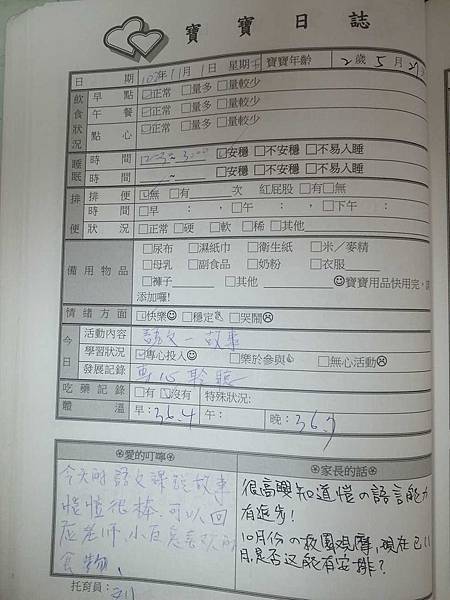 寶寶日誌
日期 102年11月1日 星期五 寶寶年齡 2歲5月21天
飲食狀況 早點 ☑正常 □量多 □量較少
午餐 ☑正常 □量多 □量較少
點心 ☑正常 □量多 □量較少
睡眠 時間 ~3:00 ☑安穩 □不安穩 □不易入睡
時間 ~ □安穩 □不安穩 □不易入睡
排便 排便 ☑無 □有 次 紅屁股 □有□無
時間 □早 : ,□午 : ,□下午 :
狀況 □正常 □硬 □軟 □稀 □其他
備用物品 □尿布 □濕紙巾 □衛生紙 □米/麥精
□母乳 □副食品 □奶粉 □衣服
□褲子 □其他 ☺寶寶用品快用完,請
添加囉!
情緒方面 快樂☺ □穩定 □哭鬧☹
今日 活動內容 語文-故事
學習狀況 ☑專心投入☺ □樂於參與 □無心活動☹
發展記錄 專心聆聽
吃藥記錄 □有 ☑沒有 特殊狀況:
體溫 早:36.4 午: 晚:36.9
愛的叮嚀
今天的語文課說故事
愷愷很棒.可以回
應老師,小白兔喜歡的
食物、
托育員:
家長的話
很高興知道愷の語言能力
有進步!
10月份の校園觀摩,現在已11
月,是否还能有安排?